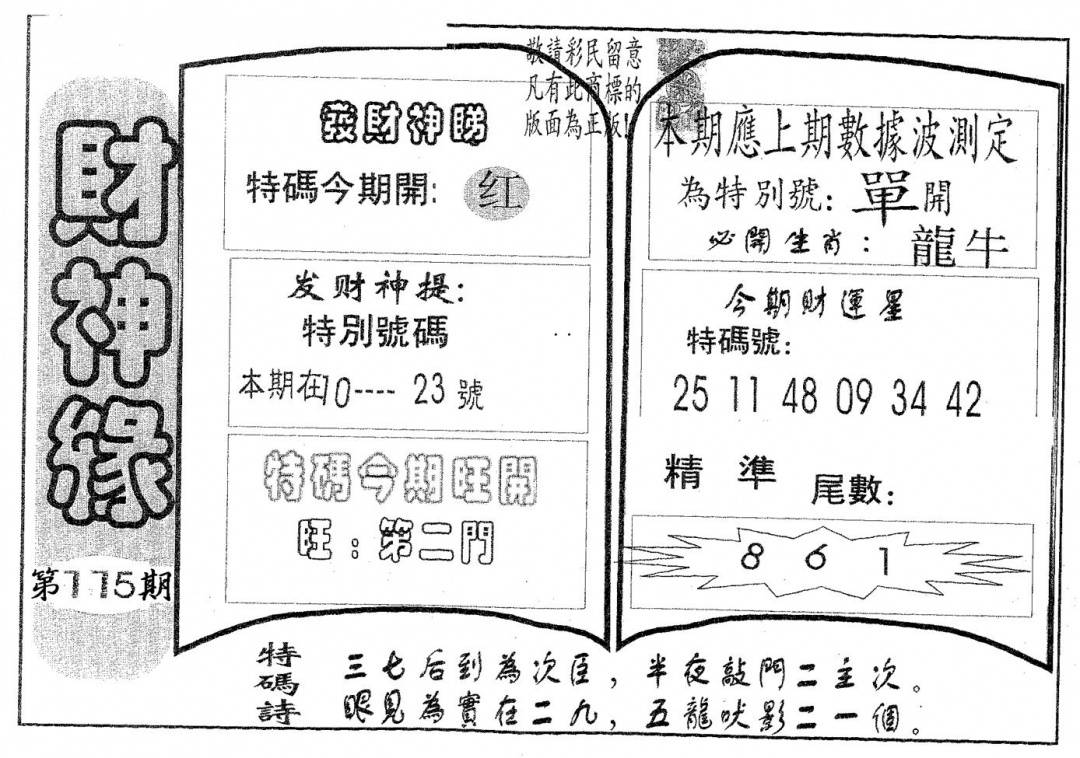 財神緣
第115期
敬請彩民留意
凡有此商標的
版面為正版!
發財神睇
特碼今期開: 红
发财神提:
特別號碼
本期在10---- 23 號
特碼今期旺開
旺:第二門
本期應上期數據波測定
為特別號: 單開
必開生肖: 龍牛
今期財運星
特碼號:
25 11 48 09 34 42
精 準 尾數:
8 6 1
特碼詩
三七后到為次臣,半夜敲門二主次。
眼見為實在二九,五龍吠影二一個。